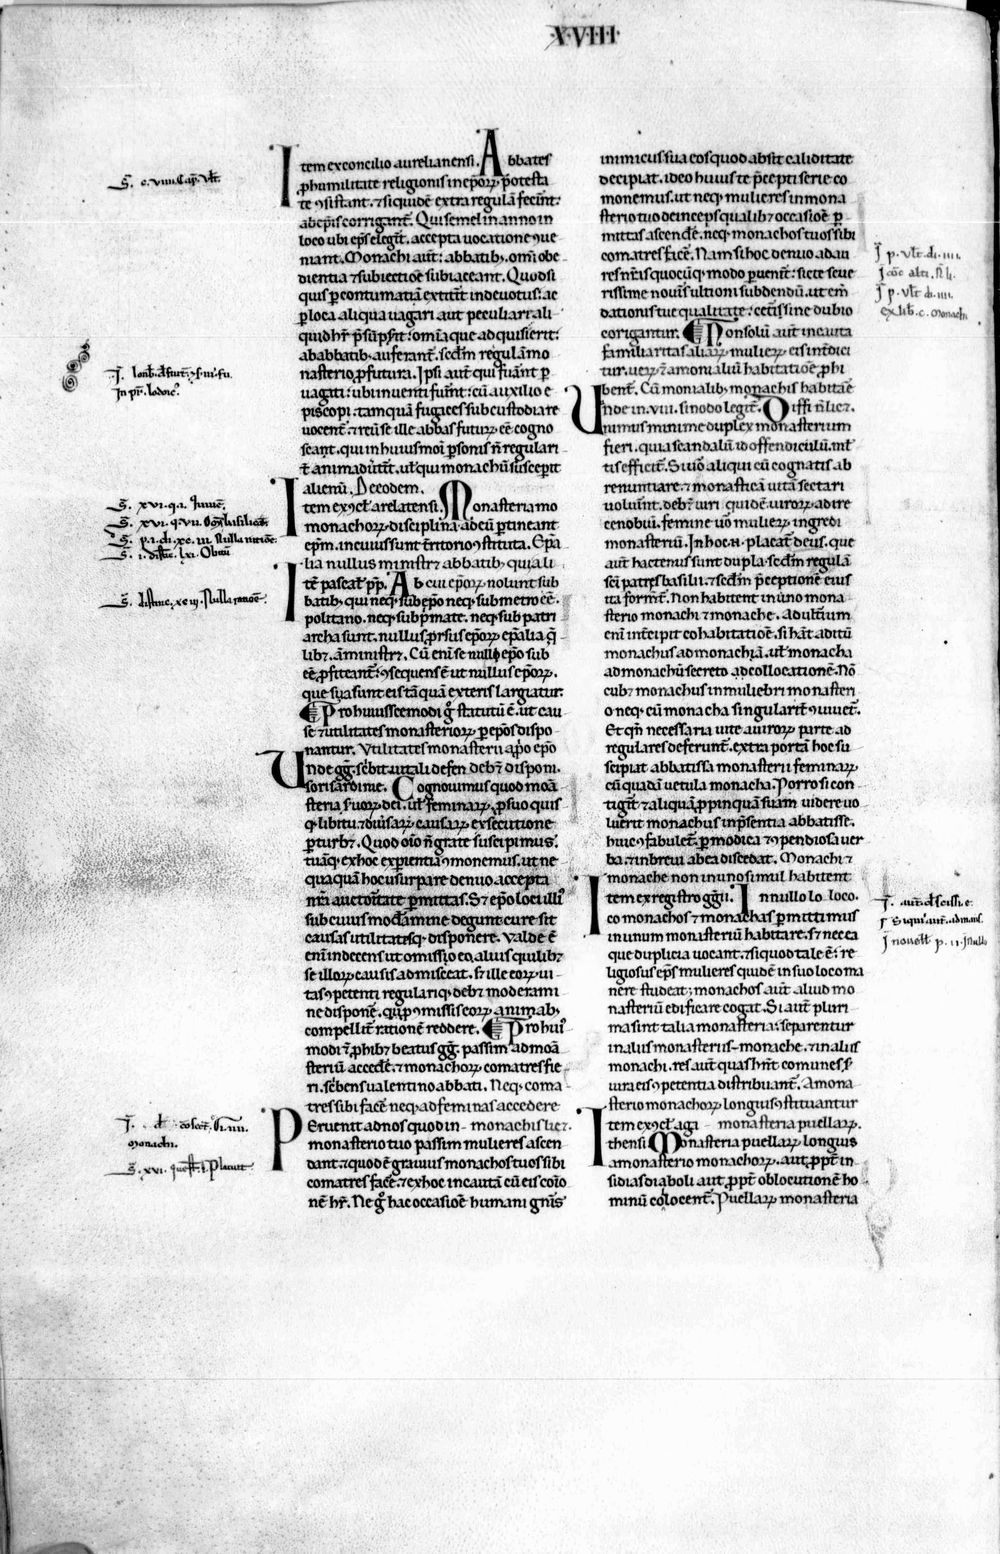 XVIII
Item ex concilio aurelianensi. Abbates
ꝓ humilitate religionis in ep̄orꝝ p̄otesta
te ꝯsistant. ⁊ siquid extra regulā fecint:
ab ep̄is corrigant̄. Qui semel in anno in
loco ubi ep̄s elegit̄. accepta uocatione ꝯue
niant. Monachi aut̄: abbatibꝫ. om̄i obe
dientia ⁊ subiectiōe subiaceant. Quod si
quis ꝑ contumatiā extitit̄ indeuotus: ac
ꝑ loca aliqua uagari aut peculiari ali
quid hr̄e p̄sūpsit̄: om̄ia que adquisierit:
ab abbatibꝫ auferant̄. scdm̄ regulā mo
nasterio ꝓfutura. Ipsi aut̄ qui fuāint ꝑ
uagati: ubi inuenti fuīnt: cū auxilio e
piscopi. tamquā fugaces sub custodia re
uocent̄. ⁊ reū se ille abbas futurꝝ ēē cogno
scant. qui in huiusmōi ꝑsonis n̄ regulari
t̄ animaduīit̄. ut̄ qui monachū susceperit
alienū. De eodem.
Item ex ꝯcl̄ arelatensi. Monasteria mo
monachorꝝ disciplina. ad eū ꝑtineant
ep̄m. in cuius sunt t̄ritorio ꝯstituta. Ep̄a
lia nullus ministr⁊ abbatibꝫ qui ali
Itē pascal̄ pp̄. Ab cui ep̄orꝝ nolunt sub
batibꝫ qui neqꝫ sub ep̄o neqꝫ sub metro ēē.
politano. neqꝫ sub p̄mate. neqꝫ sub patri
archa sunt. nullus ꝓrsus ep̄orꝝ ep̄alia q̄
lib⁊. āministr⁊. Cū eni se nulli ep̄o sub
ēē ꝓfiteant̄: ꝯsequens ē ut nullus ep̄orꝝ.
que sua sunt eis tāquā exteris largiatur.
Pro huiusscemodi ḡ statutū ē. ut cau
se ⁊ utilitates monasteriorꝝ ꝑ ep̄os dispo
nantur. Utilitates monasterii a ꝓ͞o ep̄o
Unde gḡ. sc̄bit uitali defen deb⁊ disponi.
sori sardinie. Cognouimus quod moā
steria s̄uorꝝ dei. ut̄ feminarꝝ. ꝓ suo quis
qꝫ libitu ⁊ diūsarꝝ causarꝝ exsecutione
ꝑturb⁊. Quod oīo n̄ grate suscipimus.
tuāqꝫ ex hoc exꝑientiā ꝯmonemus. ut ne
quaquā hoc usurpare denuo accepta
nr̄i auctoritate ꝑmittas. S⁊ ep̄o loci illi᷒
sub cuius modāmine degunt cure sit
causas utilitatesqꝫ disponere. Valde ē
eni indecens ut omisso eo. alius quilib⁊
se illorꝝ causis admisceat. s⁊ ille eorꝝ ui
tas ꝯpetenti regulariqꝫ deb⁊ moderami
ne disponē. qui ꝓ ꝯmissis eorꝝ animabꝫ
compellit̄ rationē reddere. Pro hui᷒
modi ⁊ ꝓhib⁊ beatus gḡ. passim ad moā
steriū accedē. ⁊ monachorꝝ comatres fie
ri. sc̄bens ualentino abbati. Neqꝫ coma
tres sibi facē neqꝫ ad feminas accedere
Peruenit ad nos quod in monachis lic⁊.
monasterio tuo passim mulieres ascen
dant. ⁊ quod ē grauius monachos tuos sibi
comatres facē. ⁊ ex hoc incautā cū eis cōio
nē hr̄. Ne ḡ hac occasiōe humani gn̄is
inimicus sua eos quod absit caliditate
decipiat. ideo huius te p̄cepti serie co
monemus. ut neqꝫ mulieres in mona
sterio tuo deinceps qualib⁊ occasiōe ꝑ
mittas ascendē. neqꝫ monachos tuos sibi
comatres facē. Nam si hoc denuo ad au
res nr̄as quocūqꝫ modo ꝑuenit̄: sic te seue
rissime nouīis ultioni subdendū. ut em̄
dationis tue qualitate: cet̄i sine dubio
corigantur. Non solū aut̄ incauta
familiaritas aliarꝝ mulierꝝ eis intdici
tur. uerꝝ ⁊ā monialiū habitatiōe ꝓhi
bent̄. Cū monialibꝫ monachis habitāe
Unde in .VIII. sinodo legit̄. Diffi n̄ lic⁊.
nimus minime duplex monasterium
fieri. quia scandalū ⁊ offendiculū mł
tis efficit̄. Si uō aliqui cū cognatis ab
renuntiare. ⁊ monasticā uitā sectari
voluīnt. deb⁊ uiri quidē: uirorꝝ adire
cenobiū. femine uō mulierꝝ ingredi
monasteriū. In hoc .n. placat̄ deus. que
aut̄ hactenus sunt dupla: scdm̄ regulā
sc̄i patres basilii. ⁊ scdm̄ p̄ceptionē eius
ita formēt̄. Non habitent in uno mona
sterio monachi ⁊ monache. Adult̄ium
eni int̄cipit cohabitatiōe. si hāt aditū
monachus ad monachā. ut̄ monacha
ad monachū secreto ad collocationē. Nō
cub⁊ monachus in muliebri monasteri
o neqꝫ cū monacha singularit̄ ꝯuiuet̄.
Et qn̄ necessaria uite a uirorꝝ parte ad
regulares deferunt̄. extra portā hoc su
scipiat abbatissa monasterii feminarꝝ
cū quadā uetula monacha. Porro si con
tigit̄ ⁊ aliquā ꝓpinquā suam uidere uo
luerit monachus in p̄sentia abbatisse.
huic ꝯfabulet̄. ꝑ modica ⁊ ꝯpendiosa uer
ba. ⁊ in breui ab ea discedat. Monachi ⁊
monache non in uno simul habitent
Item ex registro ggii. In nullo lo. loco.
co monachos ⁊ monachas ꝑmittimus
in unum monasteriū habitare. s⁊ nec ea
que duplicia uocant̄. ⁊ si quod tale ē: re
ligiosus ep̄s mulieres quidē in suo loco ma
nere studeat: monachos aut̄ aliud mo
nasteriū edificare cogat. Si aut̄ pluri
ma sint talia monasteria: separentur
in aliis monasteriis monache. ⁊ in aliis
monachi. res aut̄ quas hn̄t comunes. s̄
iura eis ꝯpetentia distribuant̄. A mona
sterio monachorꝝ longius ꝯstituantur
Item ex ꝯcl̄ aga monasteria puellarꝝ.
thensi Monasteria puellarꝝ longius
a monasterio monachorꝝ. aut ꝓpt̄ in
sidias diaboli aut ꝓpt̄ oblocutionē ho
minū colocent̄. Puellarꝝ monasteria